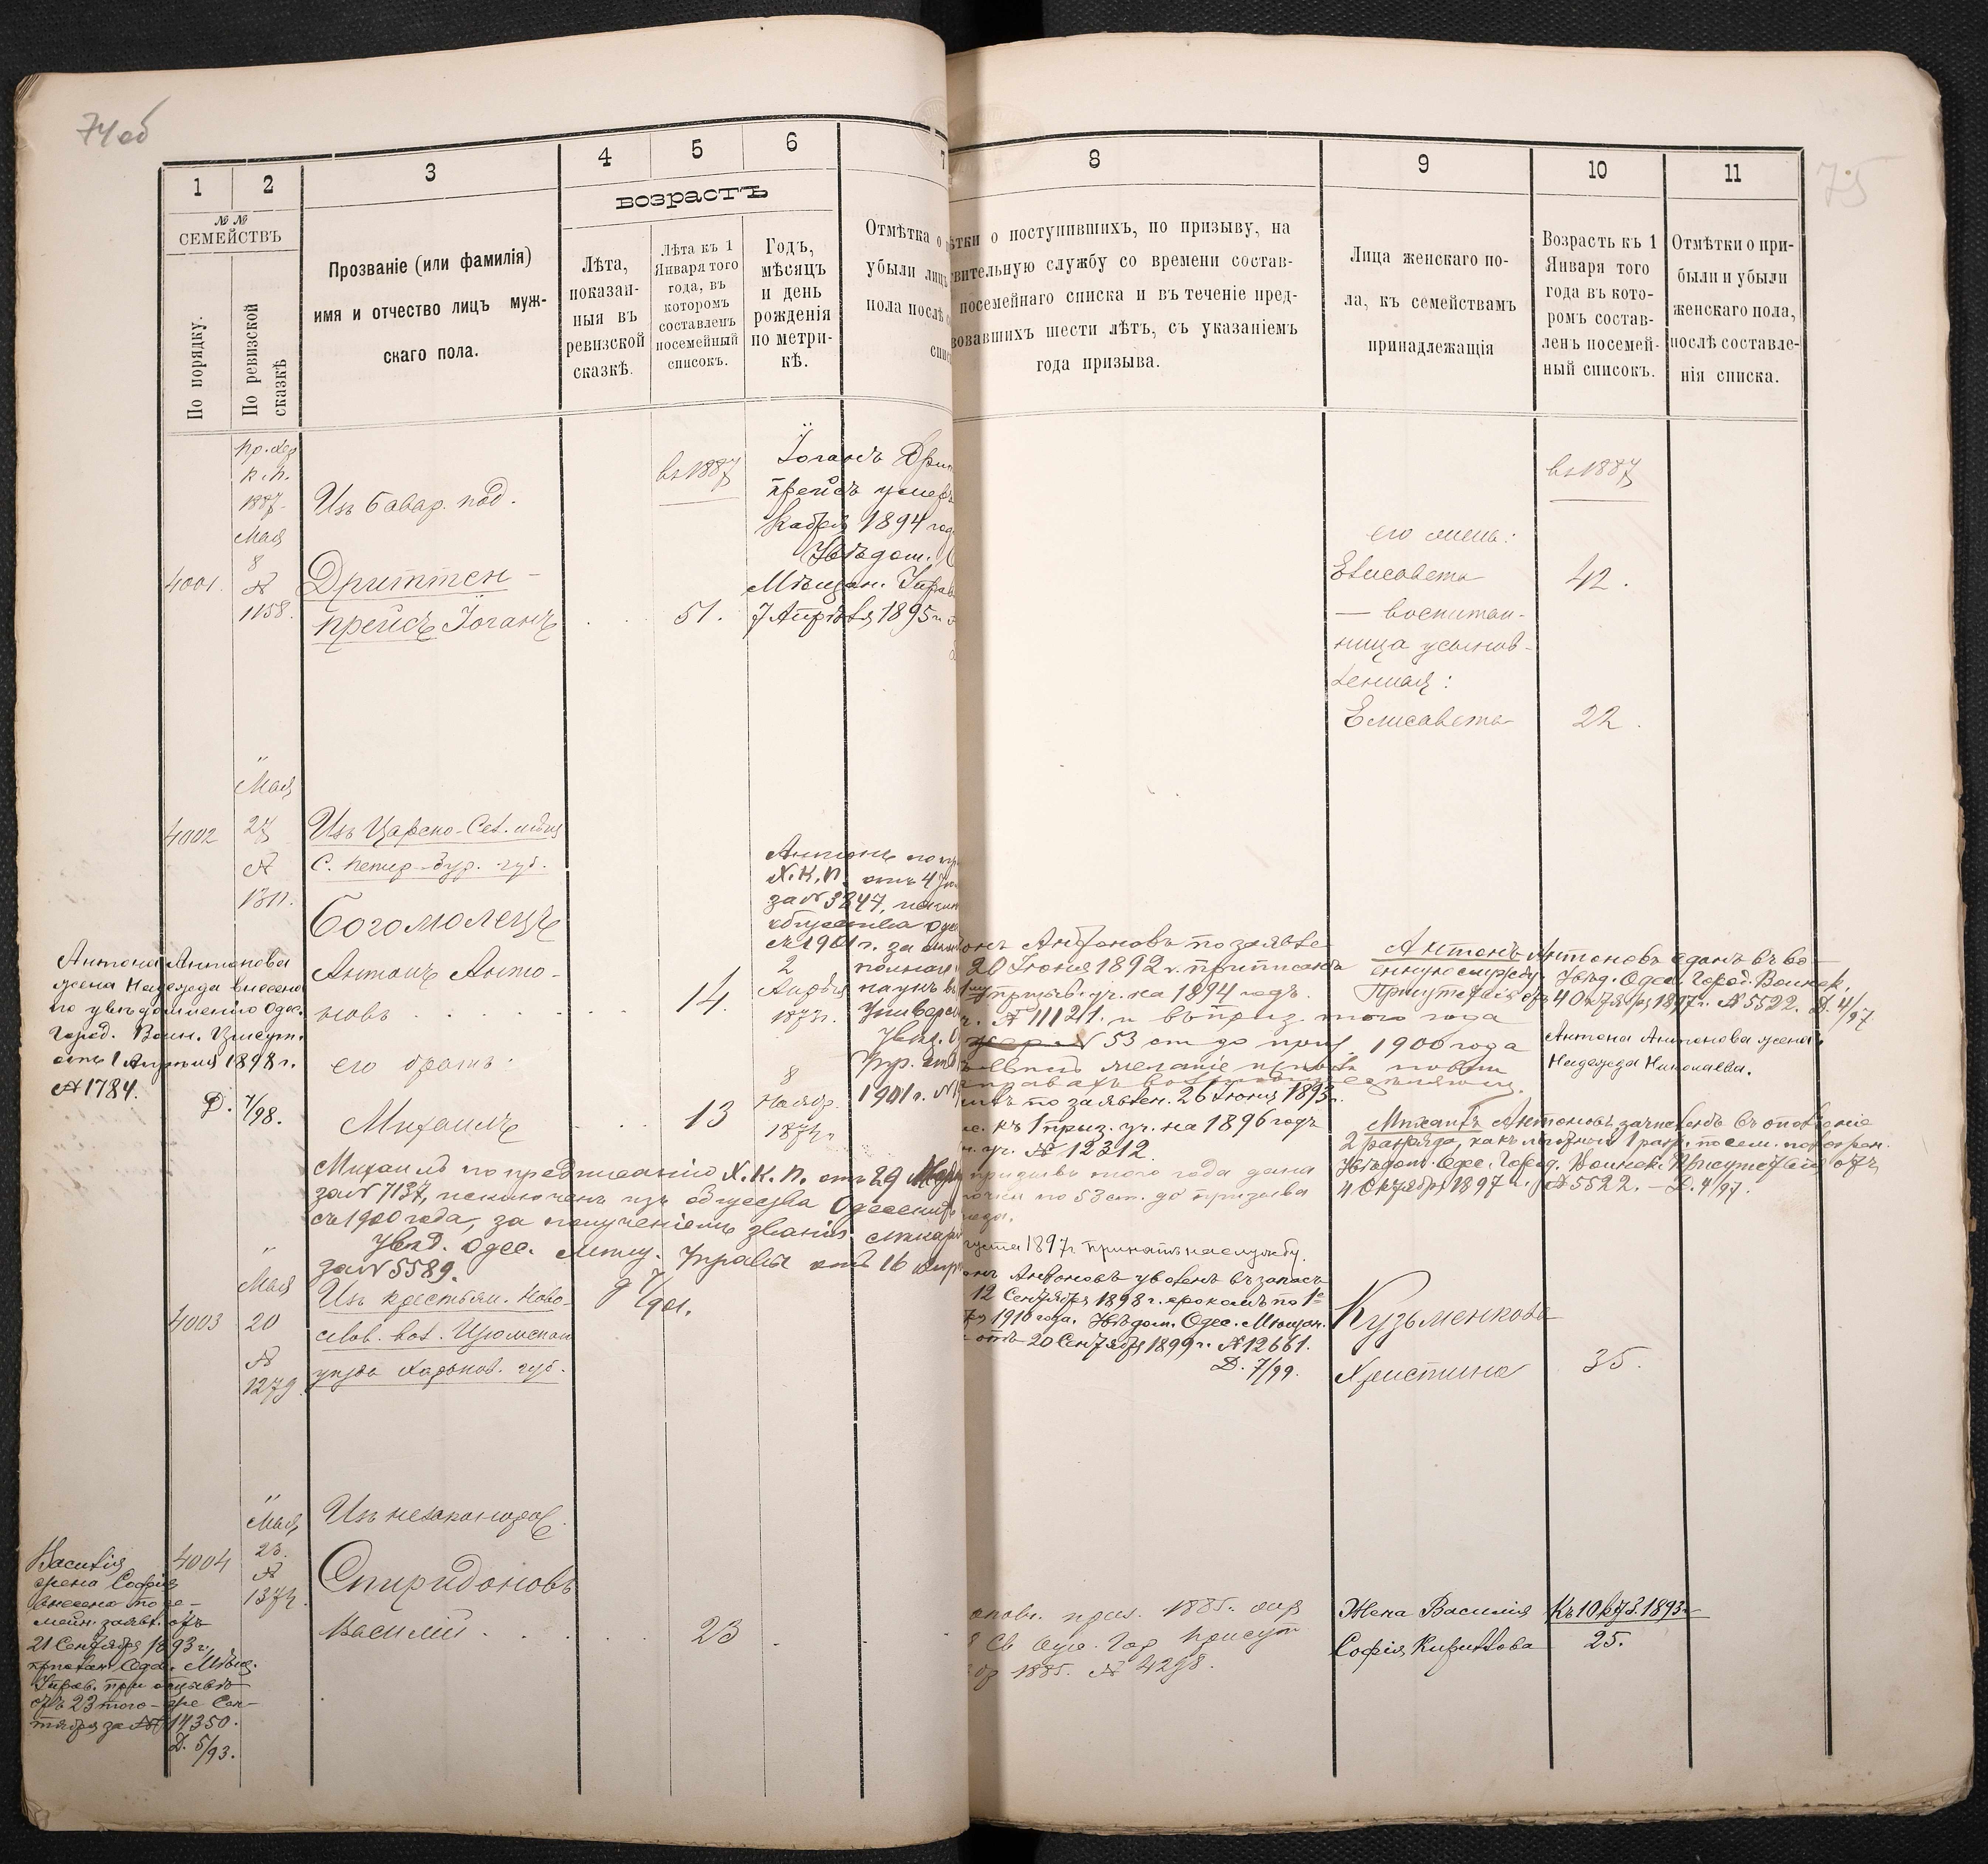 74 об
1
2
3
4
5
6
7
№№
СЕМЕЙСТВЪ
По порядку.
По ревизской сказкѣ
Прозваніе (или фамилія)
имя и отчество лицъ муж-
скаго пола.
ВОЗРАСТЪ
Лѣта,
показан-
ныя въ
ревизской
сказкѣ.
Лѣта къ 1
Января того
года, въ
которомъ
составленъ
посемейный
списокъ.
Годъ,
мѣсяцъ
и день
рожденія
по метри-
кѣ.
Отмѣтка о
убыли лицъ
пола послѣ
спис
к.п.
1887
Мая
8
№
1158.
4001.
Изъ Бавар. под.
Дриттен-
прейсъ Іоганъ
въ 1887
51.
Іоганъ Дрит
прейсъ умеръ
кабря 1894 год
Увѣдом.
Мѣщан. Управ
7 Апрѣля 1895 г.
"
Мая
27
№
1311.
4002
Изъ Царско-Сел. мѣщ
С. Петер-бур. губ.
Богомолецъ
Антонъ Анто-
новъ
14.
2
Апрѣля
1873 г.
его братъ:
Михаилъ
13
8
Ноябр.
1874 г.
Антонъ по пр
Х.К.П. отъ 4 Ію
за № 3847, исключ
общества Оде
съ 1901 г. за
1901 г. №
Антона Антонова
жена Надежда внесена
по увѣдомленію Одес.
Город. Воин. Присут.
отъ 1 Апрѣля 1898 г.
№ 1784.
Д. 7/98.
Михаилъ по предписанію Х.К.П. отъ 29 Мар
за № 7137, исключенъ изъ общества Одесских
съ 1900 года, за полученіемъ званія
Увѣд. Одес. Мѣщ. Управы отъ 16 Апр
за № 5589.
9 7/901.
"
Мая
20
№
1279.
4003
Изъ крестьян. Ново-
слов. вол. Изюмскаго
уѣзда Харьков. губ.
"
Мая
23.
№
1374.
4004
Изъ незаконорож.
Спиридоновъ
Василій
23
Василія
жена Софія
внесена по се-
мейн. заявл. отъ
21 Сентября 1893 г.,
препов. Одес. Мѣщ.
Управ. при отзывѣ
отъ 23 того-же Сен-
тября за № 14350.
Д. 5/93.
75
8
9
10
11
ѣтки о поступившихъ, по призыву, на
твительную службу со времени состав-
посемейнаго списка и въ теченіе пред-
вовавшихъ шести лѣтъ, съ указаніемъ
года призыва.
Лица женскаго по-
ла, къ семействамъ
принадлежащія
Возрасть къ 1
Января того
года въ кото-
ромъ состав-
ленъ посемей-
ный списокъ.
Отмѣтки о при-
были и убыли
женскаго пола,
послѣ составле-
нія списка.
въ 1887
его жена:
Елисавета
42.
— воспитан-
ница усынов-
ленная:
Елисавета
22.
онъ Антоновъ по заявле
20 Іюня 1892 г. приписанъ
1 му призыв. уч. на 1894 годъ.
г. № 11121. и въ приз. того года
53 ст до приз. 1900 года
желаніе
по заявлен. 26 Іюня 1893 г.
къ 1 приз. уч. на 1896 годъ
уч. № 12312.
призывъ того года дана
по 53 ст. до призыва
года.
густа 1897 г. принятъ на службу.
онъ Антоновъ уволенъ въ запасъ
12 Сентября 1898 г. срокомъ по 1е
1910 года. Увѣдом. Одес. Мѣщан.
отъ 20 Сентября 1899 г. № 12661.
Д. 7/99.
Антонъ Антоновъ сданъ въ во-
енную службу. Увѣд. Одес. Город. Воинск.
Присутствія отъ 4 Октября 1897 г. № 5522. Д. 4/97.
Антона Антонова жена:
Надежда Николаева.
Михаилъ Антоновъ зачисленъ въ ополченіе
2 разряда, какъ льготный 1 разр. по сем. полож.
Увѣдом. Одес. Город. Воинск. Присутствія отъ
4 Октября 1897 г. № 5522. — Д. 4/97.
Кузьменкова
Христина
35.
ополч. приз. 1885.
Св Одес. Гор Присут
1885. № 4298.
Жена Василія
Софія Кириллова
Къ 10 1893 г.
25.